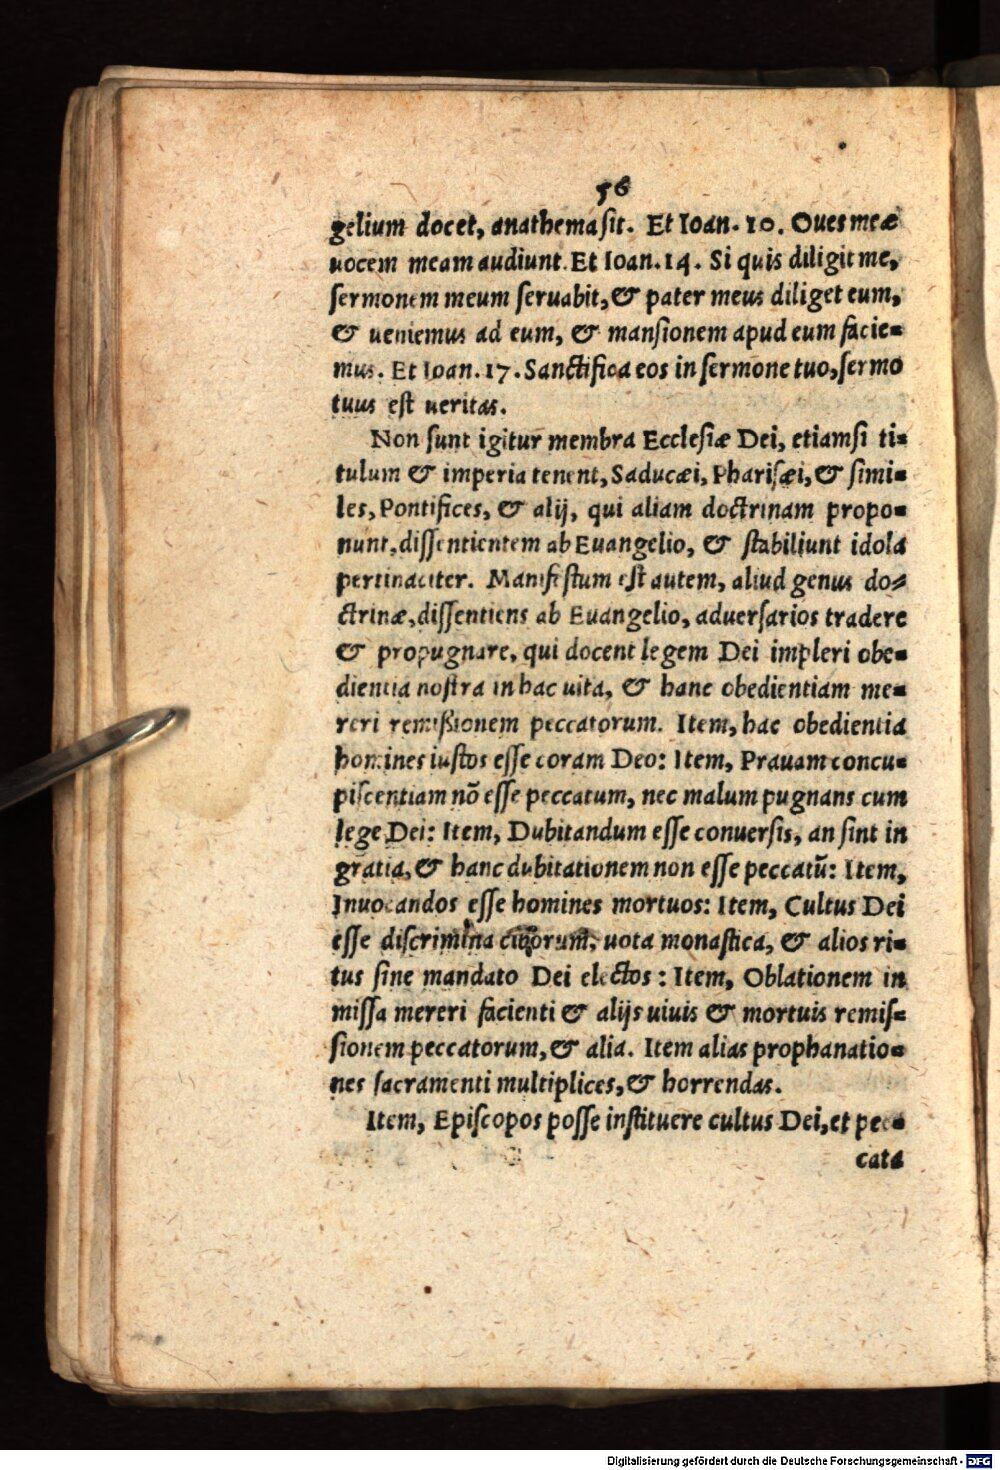 56
gelium docet, anathema sit. Et Ioan. 10. Oues meæ
uocem meam audiunt. Et Ioan. 14. Si quis diligit me,
sermonem meum seruabit, & pater meus diliget eum,
& ueniemus ad eum, & mansionem apud eum facie=
mus. Et Ioan. 17. Sanctifica eos in sermone tuo, sermo
tuus est ueritas.
Non sunt igitur membra Ecclesiæ Dei, etiamsi ti=
tulum & imperia tenent, Saducæi, Pharisæi, & simi=
les, Pontifices, & alij, qui aliam doctrinam propo=
nunt, dissentientem ab Euangelio, & stabiliunt idola
pertinaciter. Manifestum est autem, aliud genus do=
ctrinæ, dissentiens ab Euangelio, aduersarios tradere
& propugnare, qui docent legem Dei impleri obe=
dientia nostra in hac uita, & hanc obedientiam me=
reri remissionem peccatorum. Item, hac obedientia
homines iustos esse coram Deo: Item, Prauam concu=
piscentiam nõ esse peccatum, nec malum pugnans cum
lege Dei: Item, Dubitandum esse conuersis, an sint in
gratia, & hanc dubitationem non esse peccatũ: Item,
Inuocandos esse homines mortuos: Item, Cultus Dei
esse discrimina ciborum, uota monastica, & alios ri=
tus sine mandato Dei electos: Item, Oblationem in
missa mereri facienti & alijs uiuis & mortuis remis=
sionem peccatorum, & alia. Item alias prophanatio=
nes sacramenti multiplices, & horrendas.
Item, Episcopos posse instituere cultus Dei, et pec=
cata
Digitalisierung gefördert durch die Deutsche Forschungsgemeinschaft - DFG